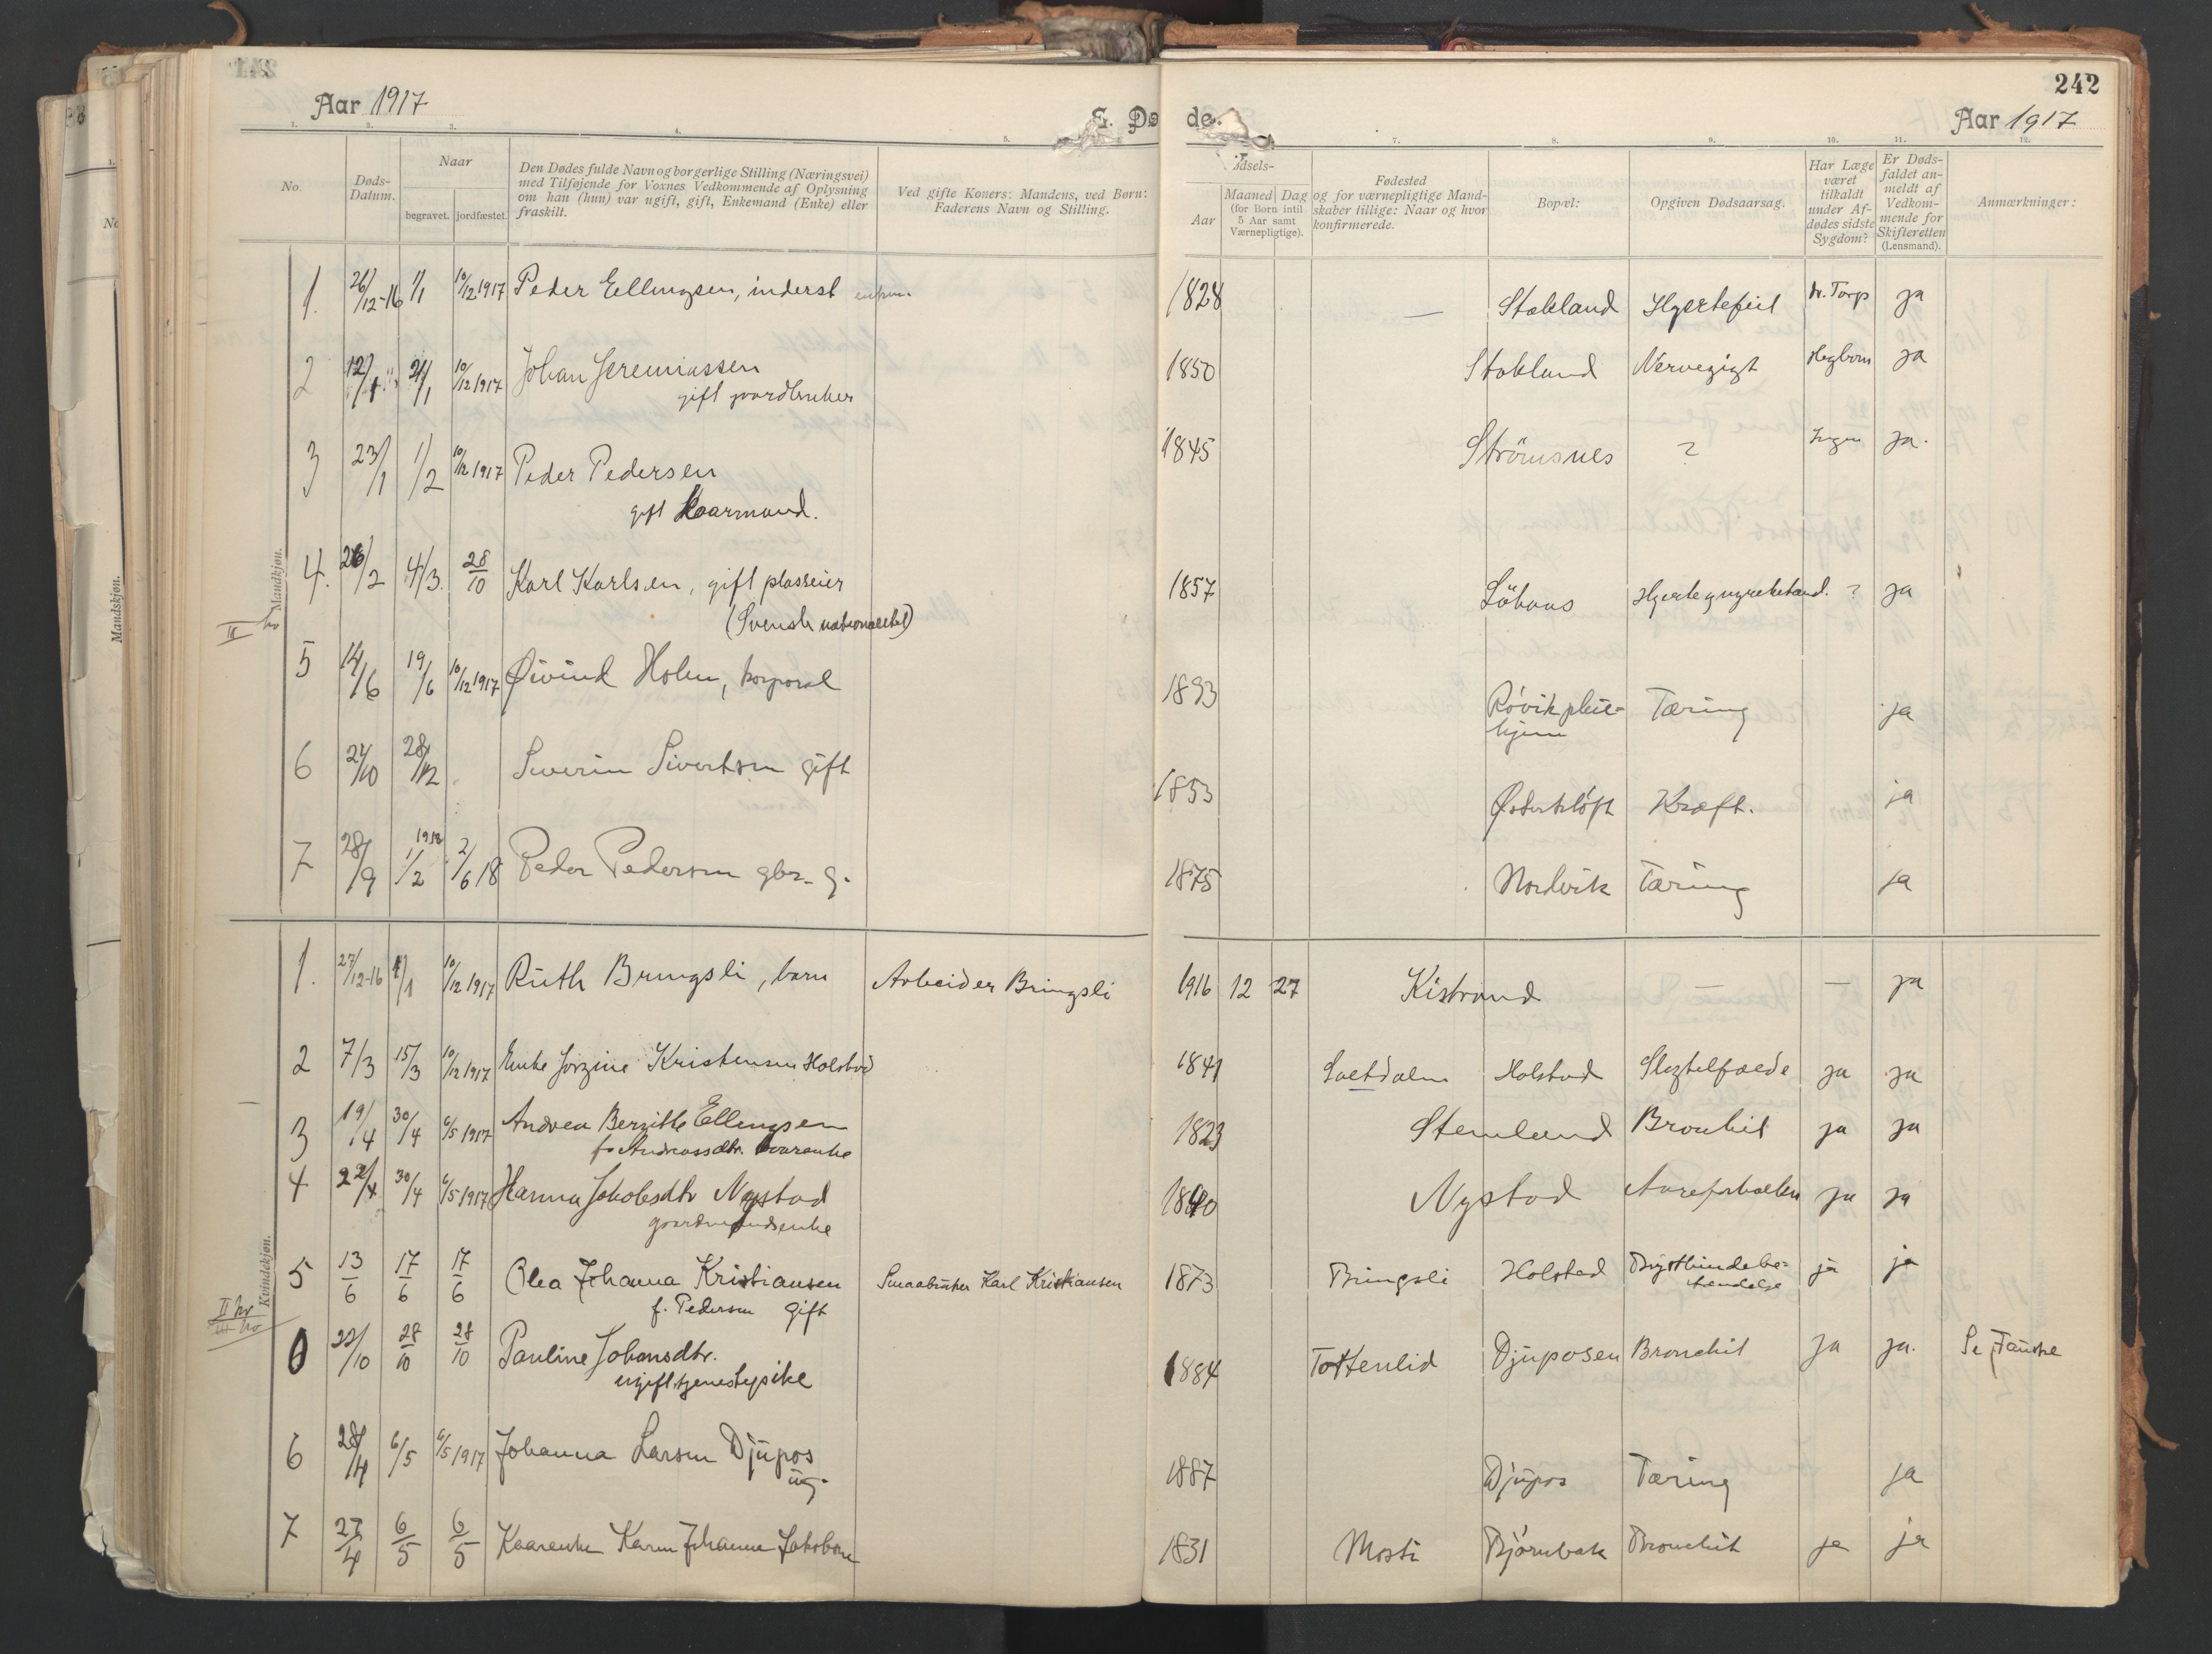 242
Aar 1917
E. Dø de.
Aar 1917
1. 2. 3. 4. 5. 7. 8. 9. 10. 11. 12.
No.
Døds-
Datum.
Naar
begravet. jordfæstet.
Den Dødes fulde Navn og borgerlige Stilling (Næringsvei)
med Tilføjende for Voxnes Vedkommende af Oplysning
om han (hun) var ugift, gift, Enkemand (Enke) eller
fraskilt.
Ved gifte Koners: Mandens, ved Børn:
Faderens Navn og Stilling.
dsels-
Aar
Maaned Dag
(for Børn intil
5 Aar samt
Værnepligtige).
Fødested
og for værnepligtige Mand-
skaber tillige: Naar og hvor
konfirmerede.
Bopæl:
Opgiven Dødsaarsag.
Har Læge
været
tilkaldt
under Af-
dødes sidste
Sygdom?
Er Døds-
faldet an-
meldt af
Vedkom-
mende for
Skifteretten
(Lensmand).
Anmærkninger:
Mandkjøn.
1. 26/12-16 1/1 10/12 1917 Peder Ellingsen, inderst 1828 — Stokland Hjertefeil Dr. Torp ja
2 12/1 21/1 10/12 1917 Johan Jeremiassen 1850 Stokland Nervegigt Hegbom ja
gift gaardbruker
3 23/1 1/2 10/12 1917 Peder Pedersen 1845 Strömsnes ? Ingen ja.
gift Kaarmand.
4. 26/2 4/3 28/10 Karl Karlsen, gift plasseier 1857 Löhaus ? ja
(Svensk nationalitet)
II
5 14/6 19/6 10/12 1917 Øivind Holen, korporal 1893 Rövik pleie- Tæring ja
hjem
6 27/10 28/12 Severin Sivertsen gift 1853 Østerkløft Kræft. ja
7 28/9 1/2 1918 2/6 18 Peder Pedersen gbr. g. 1875 Nordvik Tæring ja
Kvindekjøn.
1. 27/12-16 1/1 10/12 1917 Ruth Bringsli, barn Arbeider Bringsli 1916 12 27 Kistrand — — ja
2 7/3 15/3 10/12 1917 Enke Jorgine Kristensen Holstad 1841 Saltdalen Holstad Slagtilfælde ja ja
3 19/4 30/4 6/5 1917 Andrea Bergitte Ellingsen 1823 Stemland Bronkit ja ja
f. Andreasdtr. kaarenke
4 22/4 30/4 6/5 1917 Hanna Jakobsdtr Nystad 1840 Nystad Aareforkalkn ja ja
gaardmandsenke
5 13/6 17/6 17/6 Olea Johanna Kristiansen Smaabruker Karl Kristiansen 1873 Bringsli Holstad Brysthindebe- ja ja
tændelse
f. Pedersen gift
0 22/10 28/10 28/10 Pauline Johansdtr. 1884 Tottenlid Djuposen Bronchit ja ja. Se Fauske
ugift, tjenestepike
6 28/4 6/5 6/5 1917 Johanna Larsen Djupos 1887 Djupos Tæring ja
ug.
7 27/4 6/5 6/5 Kaarenke Karen Johanna Jakobsen 1831 Mosti Bjørnbak Bronchit ja ja
Mandskjøn.